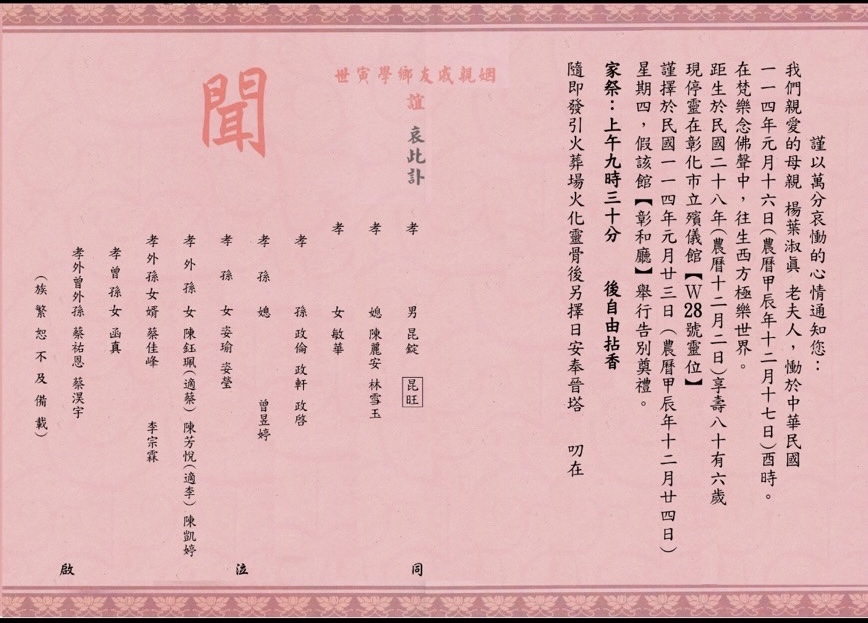 謹以萬分哀慟的心情通知您：
我們親愛的母親 楊葉淑眞 老夫人，慟於中華民國
一一四年元月十六日(農曆甲辰年十二月十七日)酉時。
在梵樂念佛聲中，往生西方極樂世界。
距生於民國二十八年(農曆十二月二日)享壽八十有六歲
現停靈在彰化市立殯儀館【W28號靈位】
謹擇於民國一一四年元月廿三日(農曆甲辰年十二月廿四日)
星期四，假該館【彰和廳】舉行告別奠禮。
家祭：上午九時三十分 後自由拈香
隨即發引火葬場火化靈骨後另擇日安奉晉塔 叨在
姻親戚友鄉學寅世
誼 哀此訃
聞
孝 男 昆錠 昆旺
孝 媳 陳麗安 林雪玉
孝 女 敏華
孝 孫 政倫 政軒 政啓
孝 孫 媳 曾昱婷
孝 孫 女 姿瑜 姿瑩
孝 外 孫 女 陳鈺珮(適蔡) 陳芳悅(適李) 陳凱婷
孝外孫女婿 蔡佳峰 李宗霖
孝曾孫女 函真
孝外曾外孫 蔡祐恩 蔡淏宇
(族繁恕不及備載)
同 泣 啟